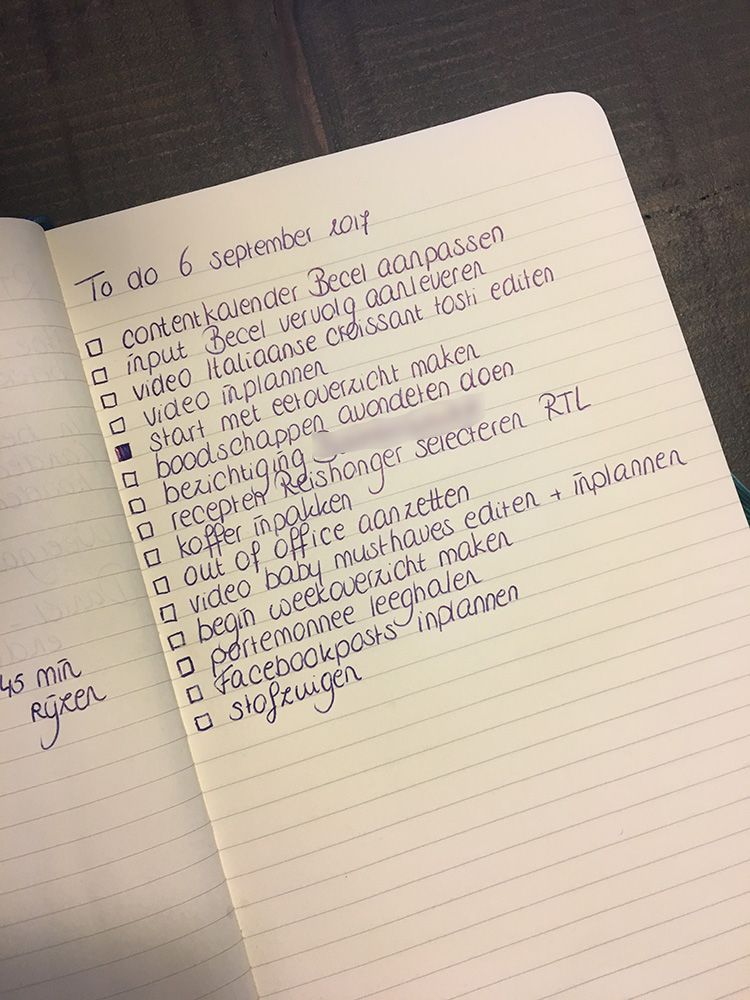 To do 6 september 2017
contentkalender Becel aanpassen
input Becel vervolg aanleveren
video Italiaanse croissant tosti editen
video inplannen
start met eetoverzicht maken
boodschappen avondeten doen
bezichtiging
recepten Reishonger selecteren RTL
koffer inpakken
out of office aanzetten
video baby musthaves editen + inplannen
begin weekoverzicht maken
portemonnee leeghalen
Facebookposts inplannen
stofzuigen
45 min
Rijzen